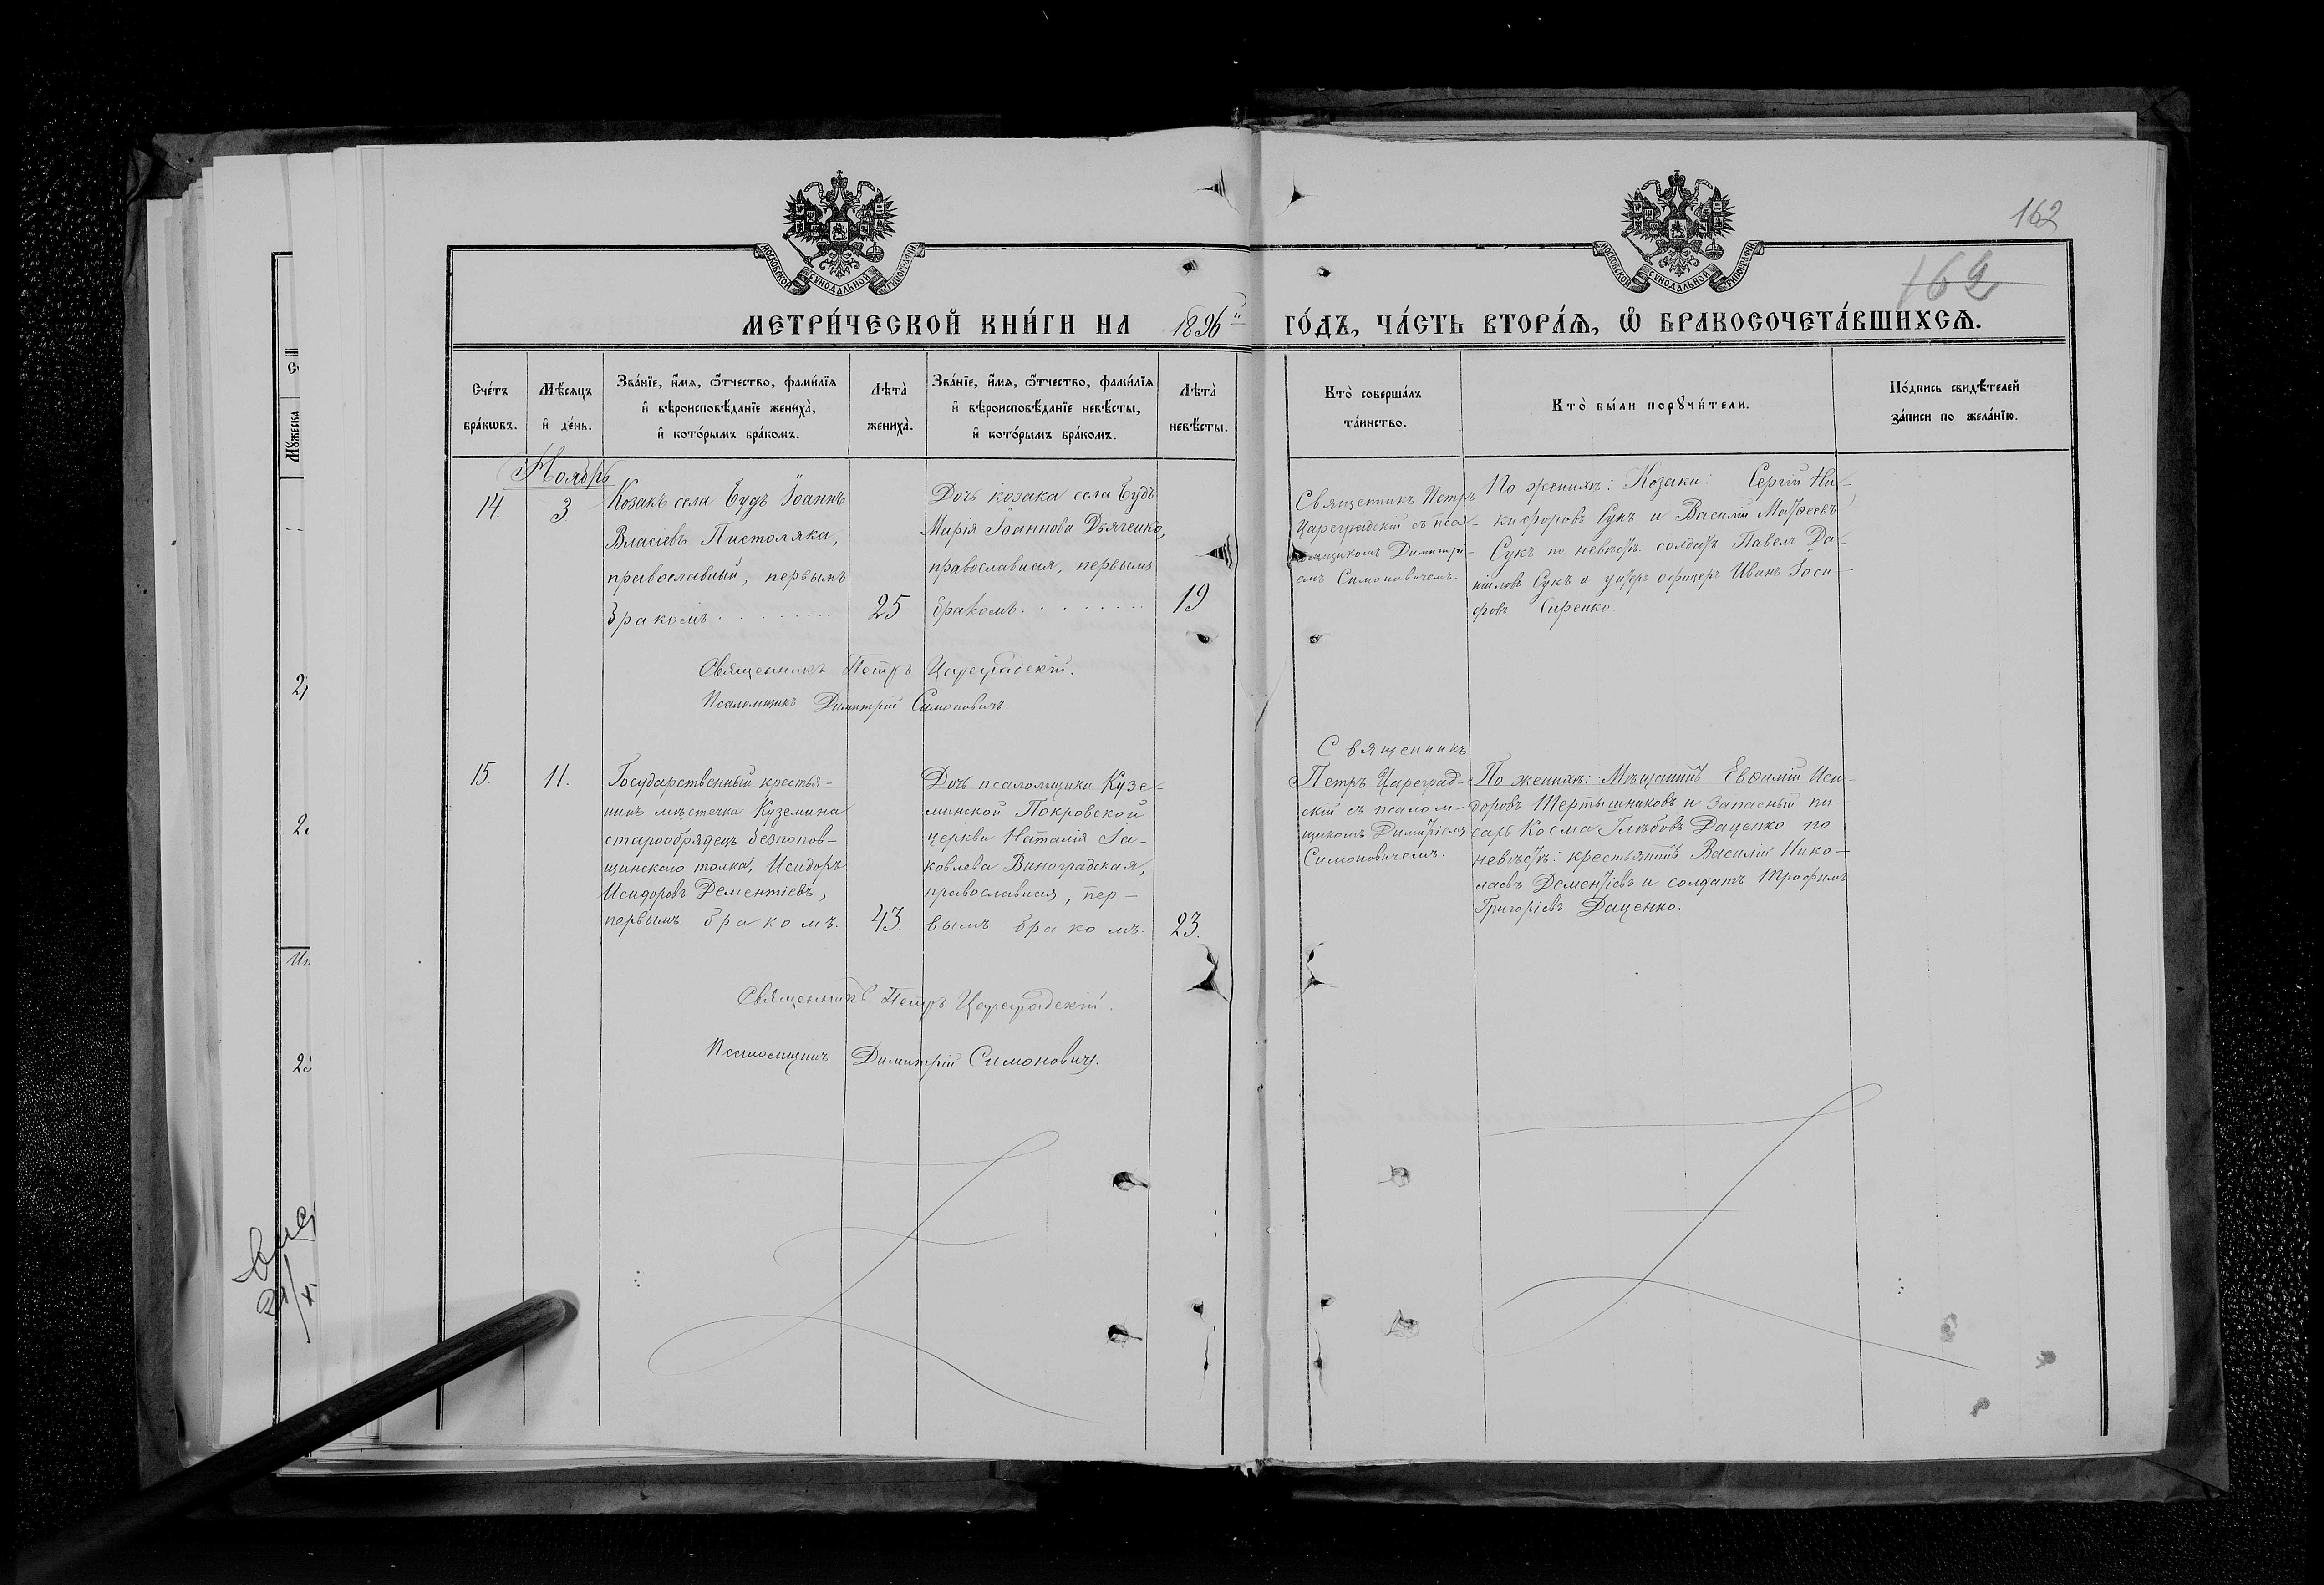 162
162
МОСКОВСКОЙ СѴНОДАЛЬНОЙ ТИПОГРАФІИ
МОСКОВСКОЙ СѴНОДАЛЬНОЙ ТИПОГРАФІИ
МЕТРИ́ЧЕСКОЙ КНИ́ГИ НА 1896й ГО́ДЪ, ЧА́СТЬ ВТОРА́Ѧ, Ѡ҆ БРАКОСОЧЕТА́ВШИХСѦ.
Сче́тъ
бра́кѡвъ.
Мѣ́сяцъ
и҆ де́нь.
Зва́нїе, и҆́мя, ѻ҆́тчество, фами́лїя
и҆ вѣроисповѣ́данїе жениха̀,
и҆ кото́рымъ бра́комъ.
Лѣта̀
жениха̀.
Зва́нїе, и҆́мя, ѻ҆́тчество, фами́лїя
и҆ вѣроисповѣ́данїе невѣ́сты,
и҆ кото́рымъ бра́комъ.
Лѣта̀
невѣ́сты.
Кто̀ соверша́лъ
та́инство.
Кто̀ бы́ли порꙋчи́тели.
По́дпись свидѣ́телей
за́писи по жела́нїю.
Ноябрь
14.
3
Козакъ села Будъ Іоаннъ
Власіевъ Пистоляка,
православный, первымъ
бракомъ
25.
Дочь козака села Будъ
Марія Іоаннова Дьяченко,
православная, первымъ
бракомъ
19
Священникъ Петръ
Цареградскій съ пса-
ломщикомъ Димитрі-
емъ Симоновичемъ.
По женихѣ: Козаки: Сергій Ни-
кифоровъ Сукъ и Василій Матѳеевъ
Сукъ по невѣстѣ: солдатъ Павелъ Да-
ніиловъ Сукъ и унтеръ офицеръ Иванъ Іоси-
фовъ Сиренко.
Священникъ Петръ Цареградскій.
Псаломщикъ Димитрій Симоновичъ.
15
11.
Государственный крестья-
нинъ мѣстечка Куземина
старообрядецъ безпопов-
щинскаго толка, Исидоръ
Исидоровъ Дементіевъ,
первымъ бракомъ.
43.
Дочь псаломщика Кузе-
минской Покровской
церкви Наталія Іа-
ковлева Виноградская,
православная, пер-
вымъ бракомъ.
23.
Священникъ
Петръ Цареград-
скій съ псалом-
щикомъ Димитріемъ
Симоновичемъ.
По женихѣ: Мѣщанинъ Евѳимій Иси-
доровъ Шертышниковъ и Запасный пи-
сарь Косма Глѣбовъ Даценко по
невѣстѣ: крестьянинъ Василій Нико-
лаевъ Дементіевъ и солдатъ Трофимъ
Григоріевъ Даценко.
Священникъ Петръ Цареградскій.
Псаломщикъ Димитрій Симоновичъ.